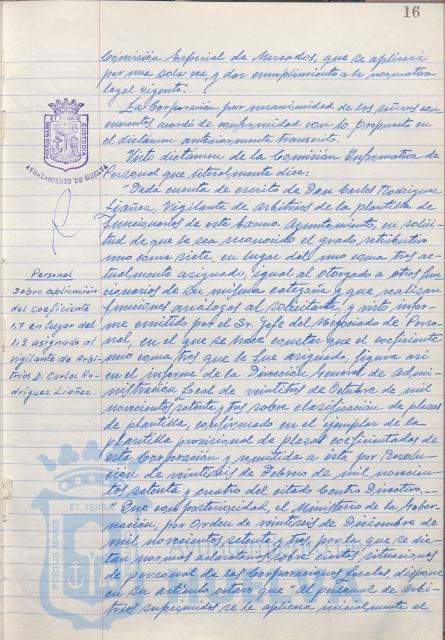 16
Comisión Especial de Mercados, que se aplicará
por una sola vez, y dar cumplimiento a la normativa
legal vigente".
La Corporación por unanimidad de los señores con
currentes, acordó de conformidad con lo propuesto en
el dictamen anteriormente transcrito.
Visto dictamen de la Comisión Informativa de
Personal que literalmente dice:
"Dada cuenta de escrito de Don Carlos Rodríguez
Liañez, Vigilante de Arbitrios de la plantilla de
Funcionarios de este Excmo. Ayuntamiento, en solici-
tud de que le sea reconocido el grado retributivo
uno coma siete, en lugar del uno coma tres ac-
tualmente asignado, igual al otorgado a otros fun
cionarios de su misma categoría y que realizan
funciones análogas al solicitante, y visto infor-
me emitido por el Sr. Jefe del Negociado de Perso-
nal, en el que se hace constar que el coeficiente
uno coma tres que le fue asignado, figura así
en el informe de la Dirección General de Admi-
nistración Local de veintitrés de Octubre de mil
novecientos setenta y tres sobre clasificación de plazas
de plantilla, confirmado en el ejemplar de la
plantilla provisional de plazas coeficientadas de
esta Corporación y remitida a ésta por Resolu-
ción de veintiseis de Febrero de mil novecien
tos setenta y cuatro del citado Centro Directivo.
Que con posterioridad, el Ministerio de la Gober-
nación, por Orden de veintiseis de Diciembre de
mil novecientos setenta y tres, por la que se dic-
tan normas aclaratorias sobre ciertas situaciones
de personal de las Corporaciones Locales, dispone
en su artículo octavo que "Al personal de Arbi-
trios suprimidos se le aplicará inicialmente el
PORTUS MARIS ET TERRAE CUSTODIA
AYUNTAMIENTO DE HUELVA
Personal
Sobre aplicación
del coeficiente
1,7 en lugar del
1,3 asignado al
vigilante de Arbi-
trios D. Carlos Ro-
dríguez Liañez.
PORTUS MARIS ET TERRAE